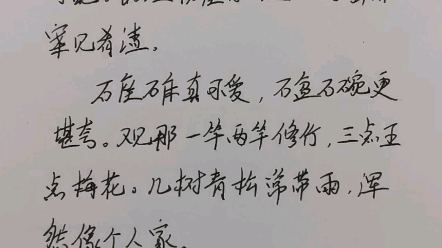 案见肴渣。
石座石床真可爱，石盆石碗更
堪夸。观那一竿两竿修竹，三点五
点梅花。几树青松常带雨，浑
然像个人家。